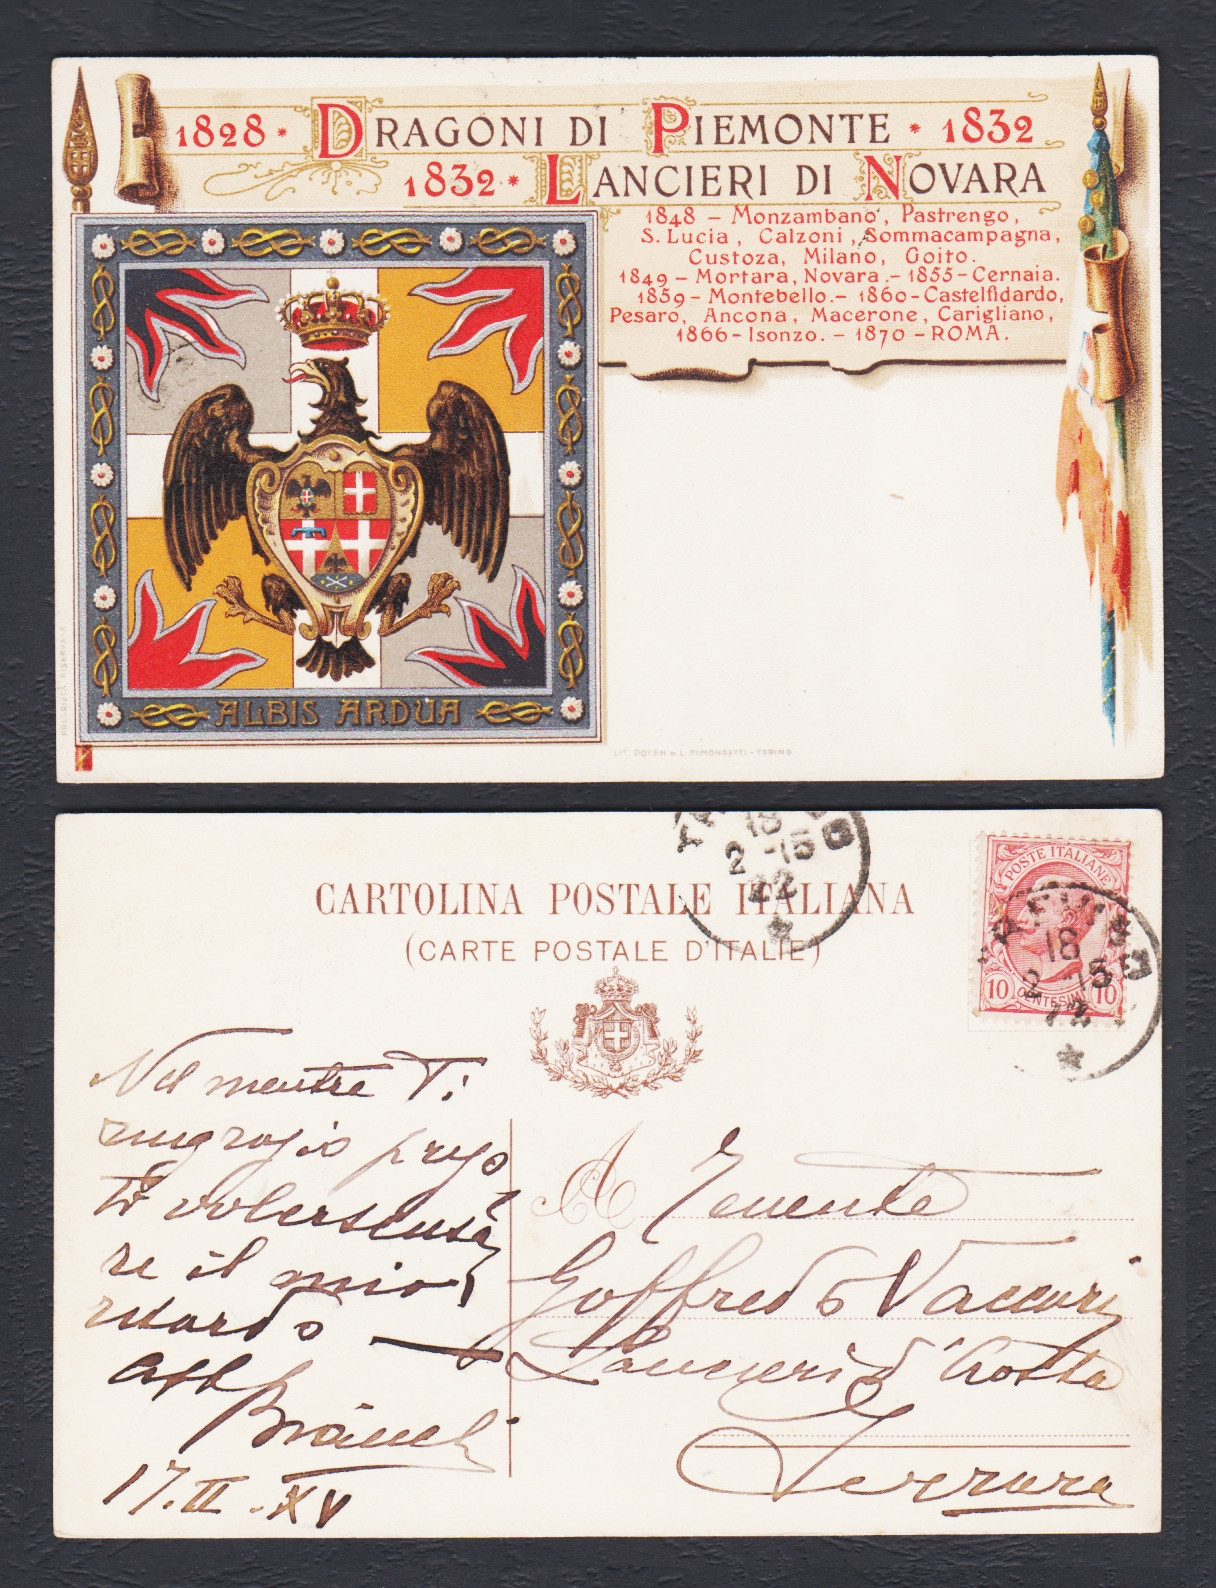 1828 * DRAGONI DI PIEMONTE * 1832
1832 * LANCIERI DI NOVARA
1848 – Monzambano, Pastrengo,
S. Lucia, Calzoni, Sommacampagna,
Custoza, Milano, Goito.
1849 – Mortara, Novara. – 1855 – Cernaia.
1859 – Montebello. – 1860 – Castelfidardo,
Pesaro, Ancona, Macerone, Carigliano,
1866 – Isonzo. – 1870 – ROMA.
ALBIS ARDUA
PROPRIETÀ RISERVATA
LIT. DOYEN DI L. SIMONDETTI – TORINO
CARTOLINA POSTALE ITALIANA
(CARTE POSTALE D'ITALIE)
POSTE ITALIANE
10 CENTESIMI 10
18
2 -15
22
18
2 -15
Nel mentre Ti
ringrazio prego
ti voler scusa
re il mio
ritardo
Aff
Bianchi
17. II. XV
A Tenente
Goffredo Vaccari
Lancieri d'Aosta
Ferrara